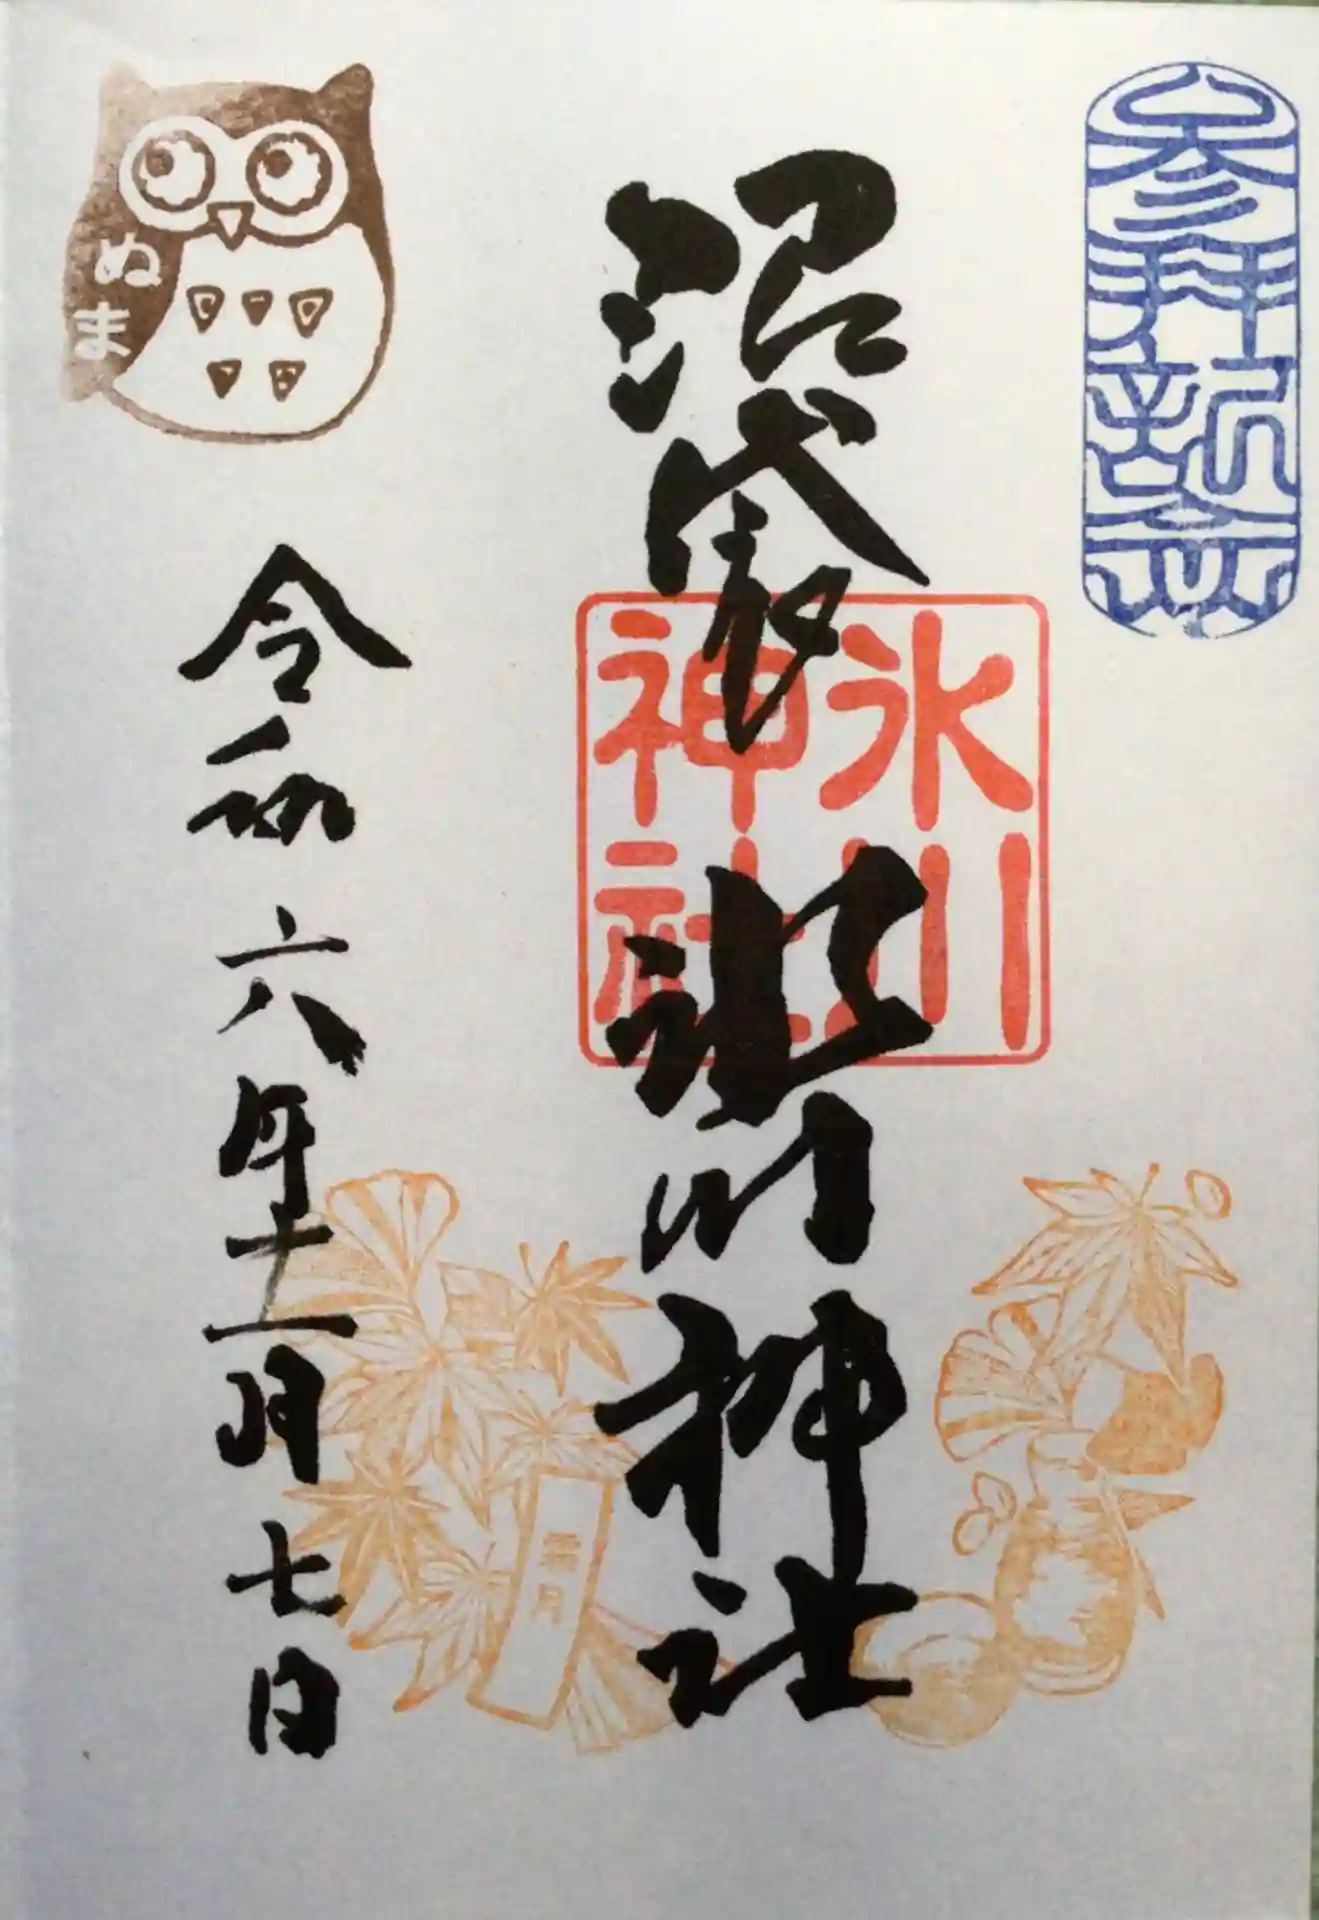 参拝記念
沼袋
氷川神社
氷川
神社
令和六年十一月七日
ぬま
霜月